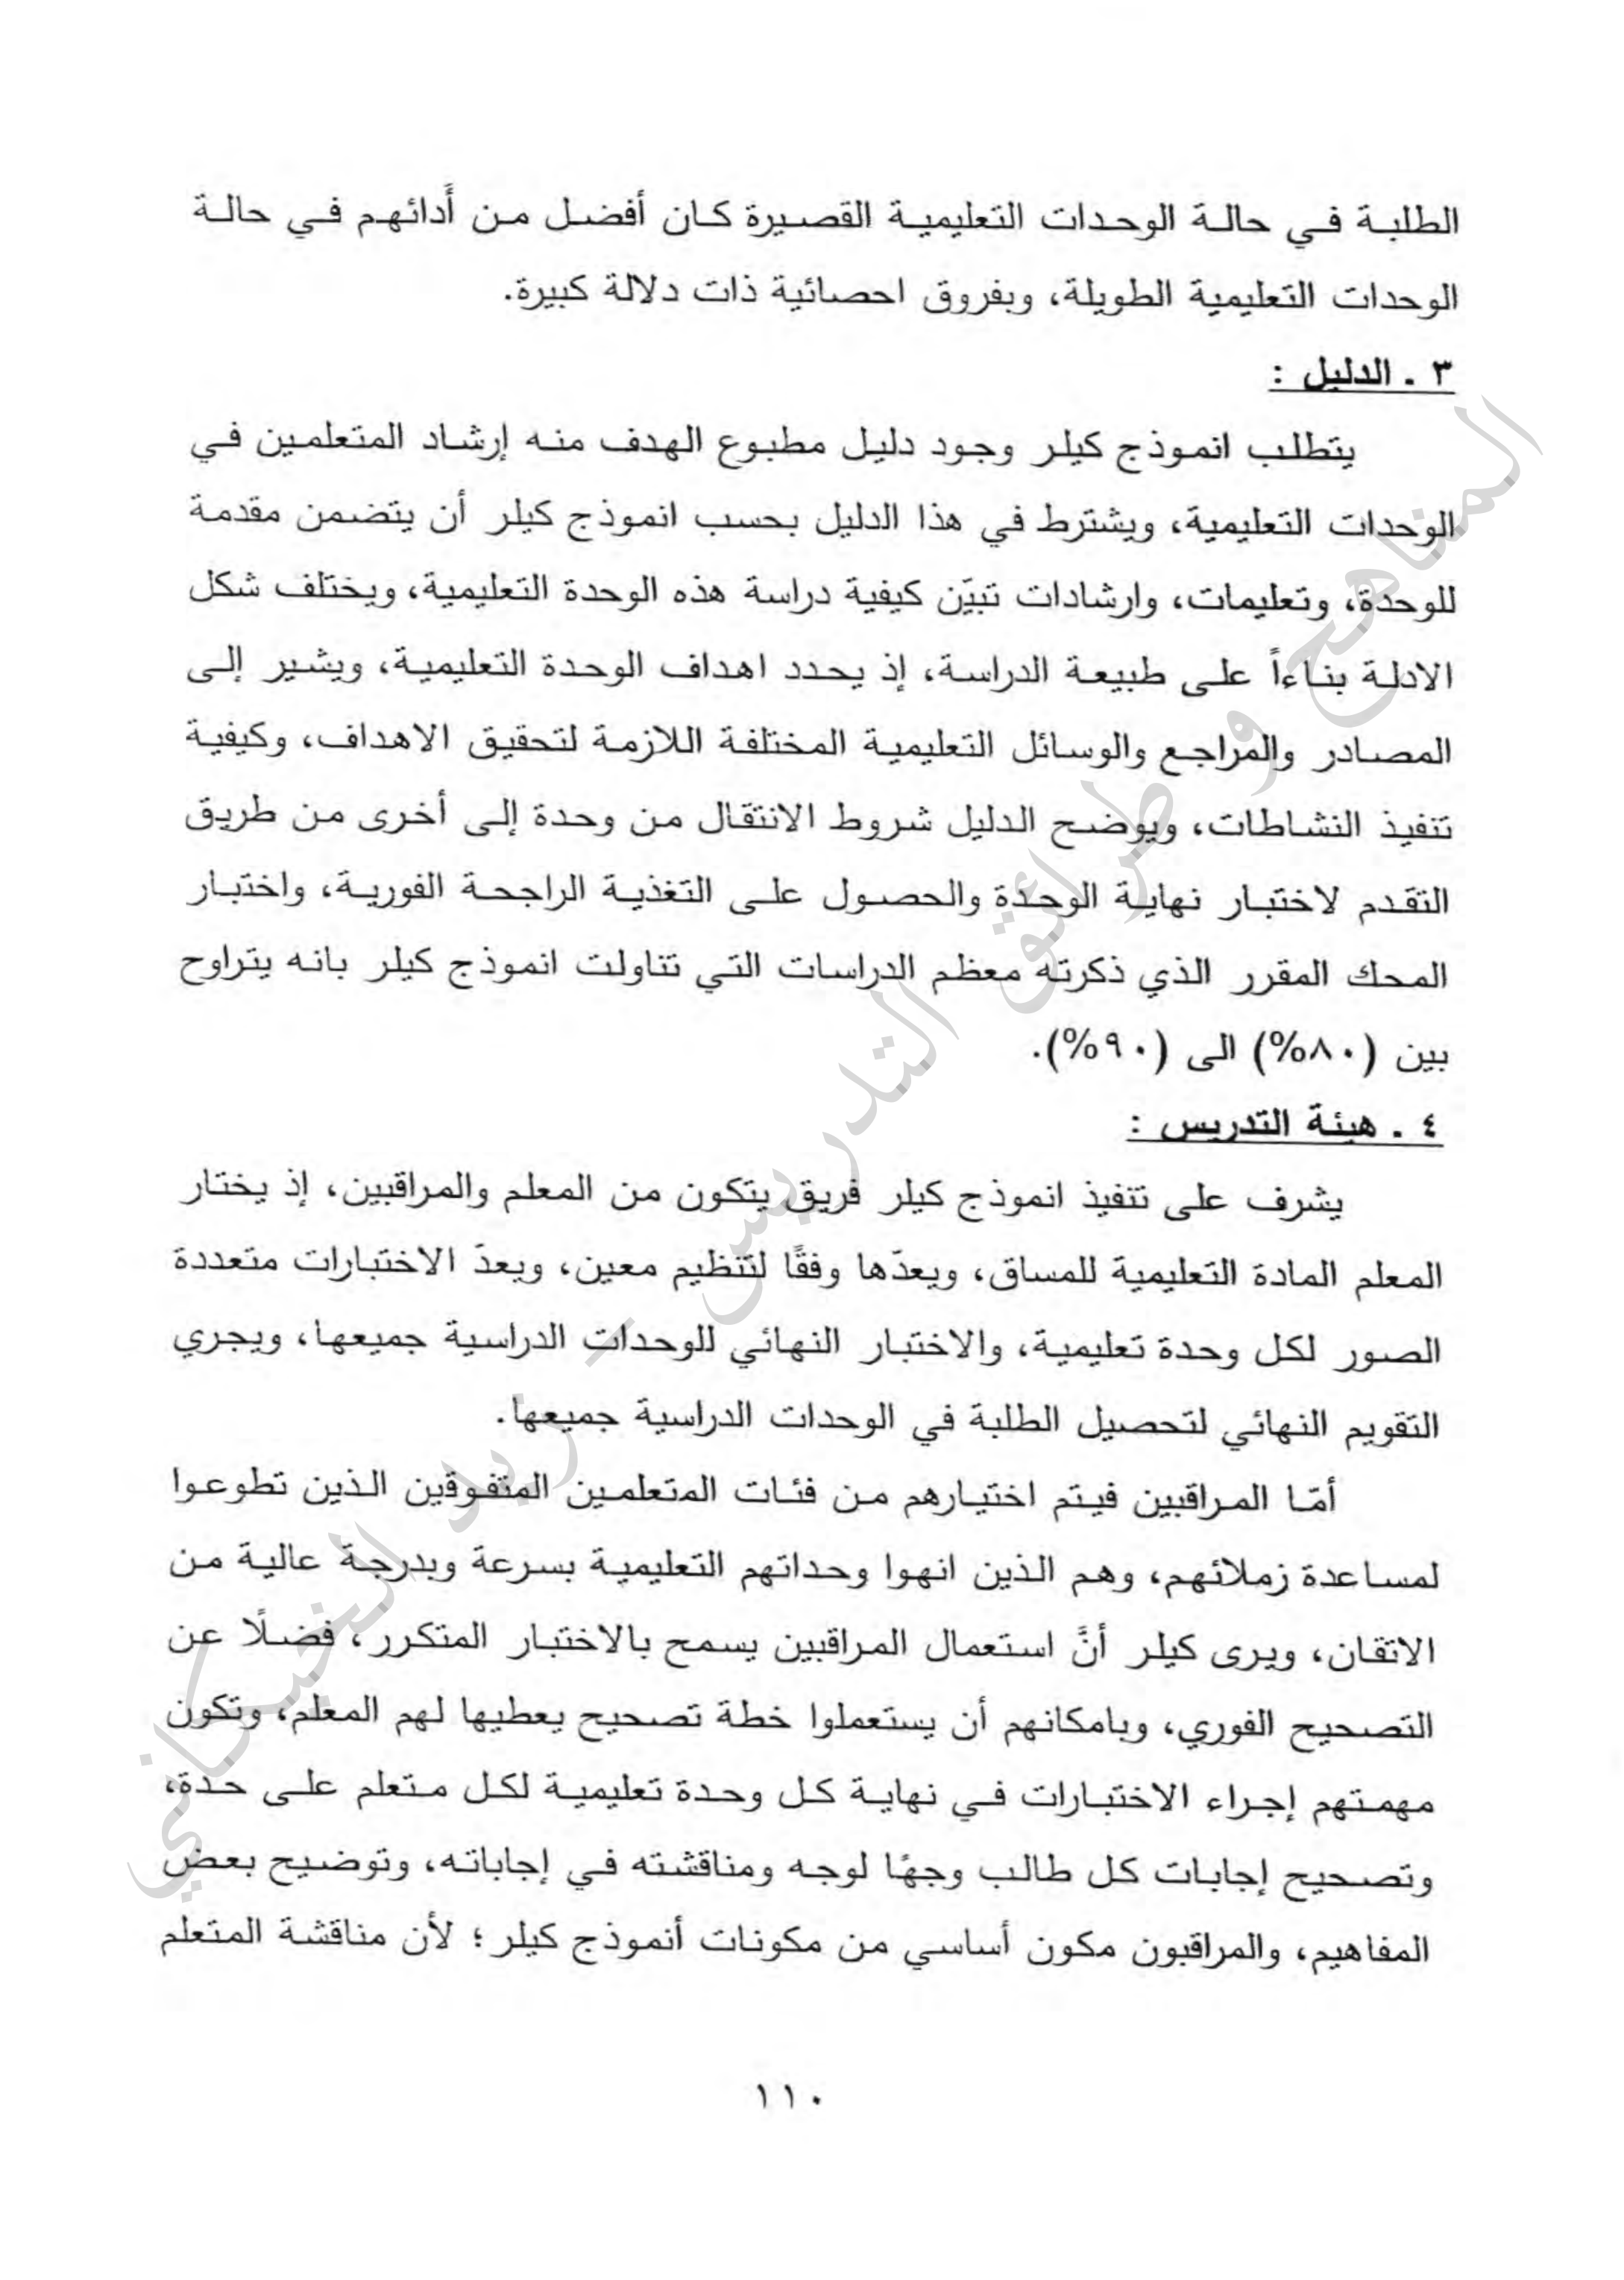 الطلبة في حالة الوحدات التعليمية القصيرة كان أفضل من أدائهم في حالة
الوحدات التعليمية الطويلة، وبفروق احصائية ذات دلالة كبيرة.
٣ . الدليل :
يتطلب انموذج كيلر وجود دليل مطبوع الهدف منه إرشاد المتعلمين في
الوحدات التعليمية، ويشترط في هذا الدليل بحسب انموذج كيلر أن يتضمن مقدمة
للوحدة، وتعليمات، وارشادات تبيّن كيفية دراسة هذه الوحدة التعليمية، ويختلف شكل
الادلة بناءاً على طبيعة الدراسة، إذ يحدد اهداف الوحدة التعليمية، ويشير إلى
المصادر والمراجع والوسائل التعليمية المختلفة اللازمة لتحقيق الاهداف، وكيفية
تنفيذ النشاطات، ويوضح الدليل شروط الانتقال من وحدة إلى أخرى من طريق
التقدم لاختبار نهاية الوحدة والحصول على التغذية الراجحة الفورية، واختبار
المحك المقرر الذي ذكرته معظم الدراسات التي تناولت انموذج كيلر بانه يتراوح
بين (٨٠%) الى (٩٠%).
٤ . هيئة التدريس :
يشرف على تنفيذ انموذج كيلر فريق يتكون من المعلم والمراقبين، إذ يختار
المعلم المادة التعليمية للمساق، ويعدّها وفقًا لتنظيم معين، ويعدّ الاختبارات متعددة
الصور لكل وحدة تعليمية، والاختبار النهائي للوحدات الدراسية جميعها، ويجري
التقويم النهائي لتحصيل الطلبة في الوحدات الدراسية جميعها.
أمّا المراقبين فيتم اختيارهم من فئات المتعلمين المتفوقين الذين تطوعوا
لمساعدة زملائهم، وهم الذين انهوا وحداتهم التعليمية بسرعة وبدرجة عالية من
الاتقان، ويرى كيلر أنَّ استعمال المراقبين يسمح بالاختبار المتكرر، فضلًا عن
التصحيح الفوري، وبامكانهم أن يستعملوا خطة تصحيح يعطيها لهم المعلم، وتكون
مهمتهم إجراء الاختبارات في نهاية كل وحدة تعليمية لكل متعلم على حدة،
وتصحيح إجابات كل طالب وجهًا لوجه ومناقشته في إجاباته، وتوضيح بعض
المفاهيم، والمراقبون مكون أساسي من مكونات أنموذج كيلر؛ لأن مناقشة المتعلم
١١٠
المناهج وطرائق التدريس -